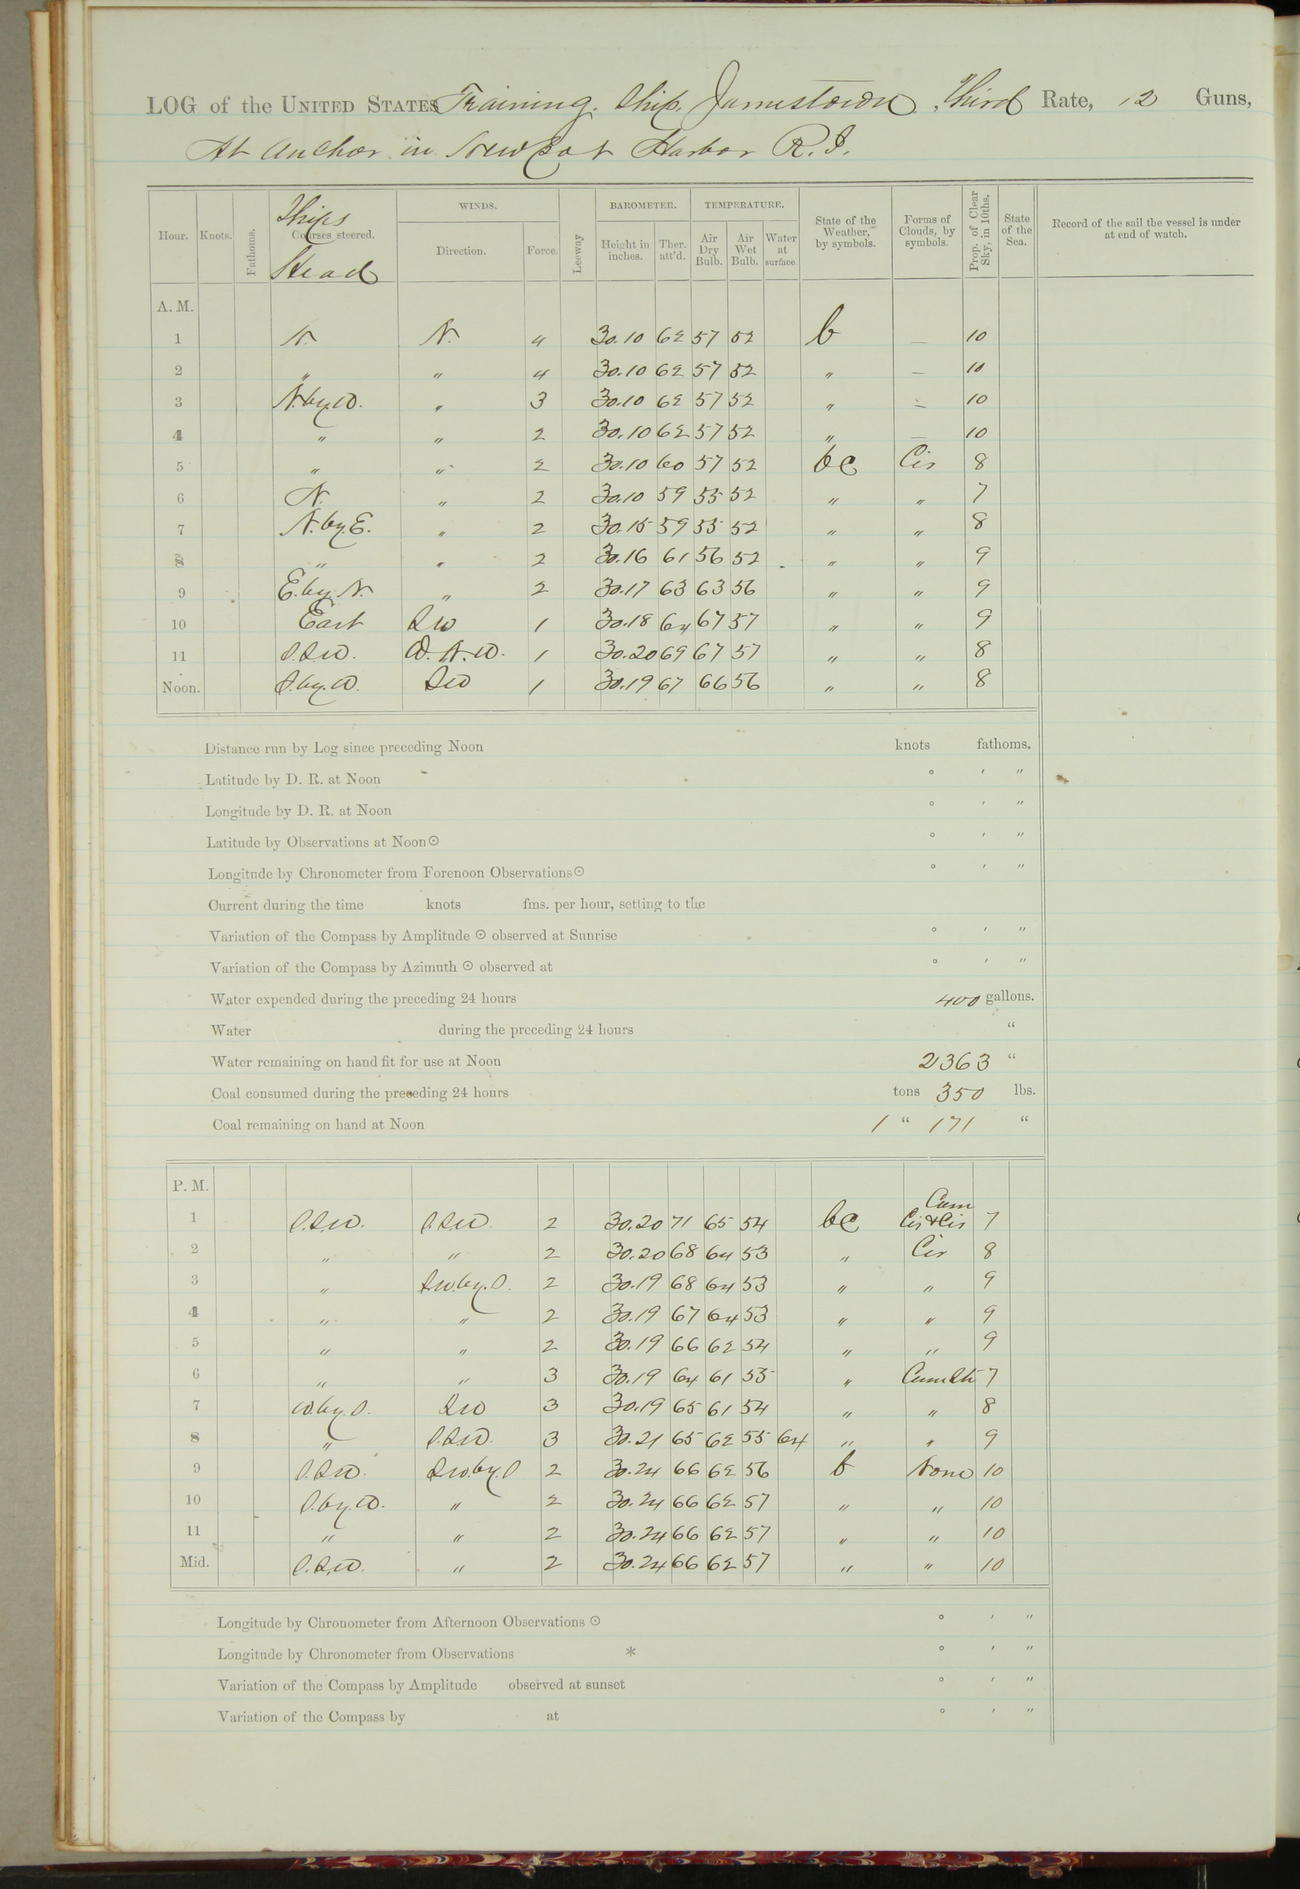 LOG of the UNITED STATES Training Ship Jamestown, Third Rate, 12 Guns,
At Anchor in Newport Harbor R.I.
Hour. Knots. Fathoms. Courses steered. Ships Head WINDS. Direction. Force. Leeway BAROMETER. Height in inches. Ther. att'd. TEMPERATURE. Air Dry Bulb. Air Wet Bulb. Water at surface. State of the Weather, by symbols. Forms of Clouds, by symbols. Prop. of Clear Sky, in 10ths. State of the Sea. Record of the sail the vessel is under at end of watch.
A. M.
1 N. N. 4 30.10 62 57 52 b — 10
2 " " 4 30.10 62 57 52 " — 10
3 N.by.W. " 3 30.10 62 57 52 " — 10
4 " " 2 30.10 62 57 52 " — 10
5 " " 2 30.10 60 57 52 bc Cir 8
6 N. " 2 30.10 59 55 52 " " 7
7 N.by.E. " 2 30.15 59 55 52 " " 8
8 " " 2 30.16 61 56 52 " " 9
9 E.by.N. " 2 30.17 63 63 56 " " 9
10 East SW 1 30.18 64 67 57 " " 9
11 S.SW. W.N.W. 1 30.20 69 67 57 " " 8
Noon. S.by.W. SW 1 30.19 67 66 56 " " 8
Distance run by Log since preceding Noon knots fathoms.
Latitude by D. R. at Noon ° ' "
Longitude by D. R. at Noon ° ' "
Latitude by Observations at Noon ☉ ° ' "
Longitude by Chronometer from Forenoon Observations ☉ ° ' "
Current during the time knots fms. per hour, setting to the
Variation of the Compass by Amplitude ☉ observed at Sunrise ° ' "
Variation of the Compass by Azimuth ☉ observed at ° ' "
Water expended during the preceding 24 hours 400 gallons.
Water during the preceding 24 hours "
Water remaining on hand fit for use at Noon 2363 "
Coal consumed during the preceding 24 hours tons 350 lbs.
Coal remaining on hand at Noon 1 " 171 "
P. M.
1 S.SW. S.SW. 2 30.20 71 65 54 bc Cum Cir & Cis 7
2 " " 2 30.20 68 64 53 " Cir 8
3 " SW.by.S. 2 30.19 68 64 53 " " 9
4 " " 2 30.19 67 64 53 " " 9
5 " " 2 30.19 66 62 54 " " 9
6 " " 3 30.19 64 61 55 " Cum Str 7
7 W.by.S. SW 3 30.19 65 61 54 " " 8
8 " S.SW. 3 30.21 65 62 55 64 " " 9
9 S.SW. SW.by.S 2 30.24 66 62 56 b None 10
10 S.by.W. " 2 30.24 66 62 57 " " 10
11 " " 2 30.24 66 62 57 " " 10
Mid. S.SW. " 2 30.24 66 62 57 " " 10
Longitude by Chronometer from Afternoon Observations ☉ ° ' "
Longitude by Chronometer from Observations * ° ' "
Variation of the Compass by Amplitude observed at sunset ° ' "
Variation of the Compass by at ° ' "